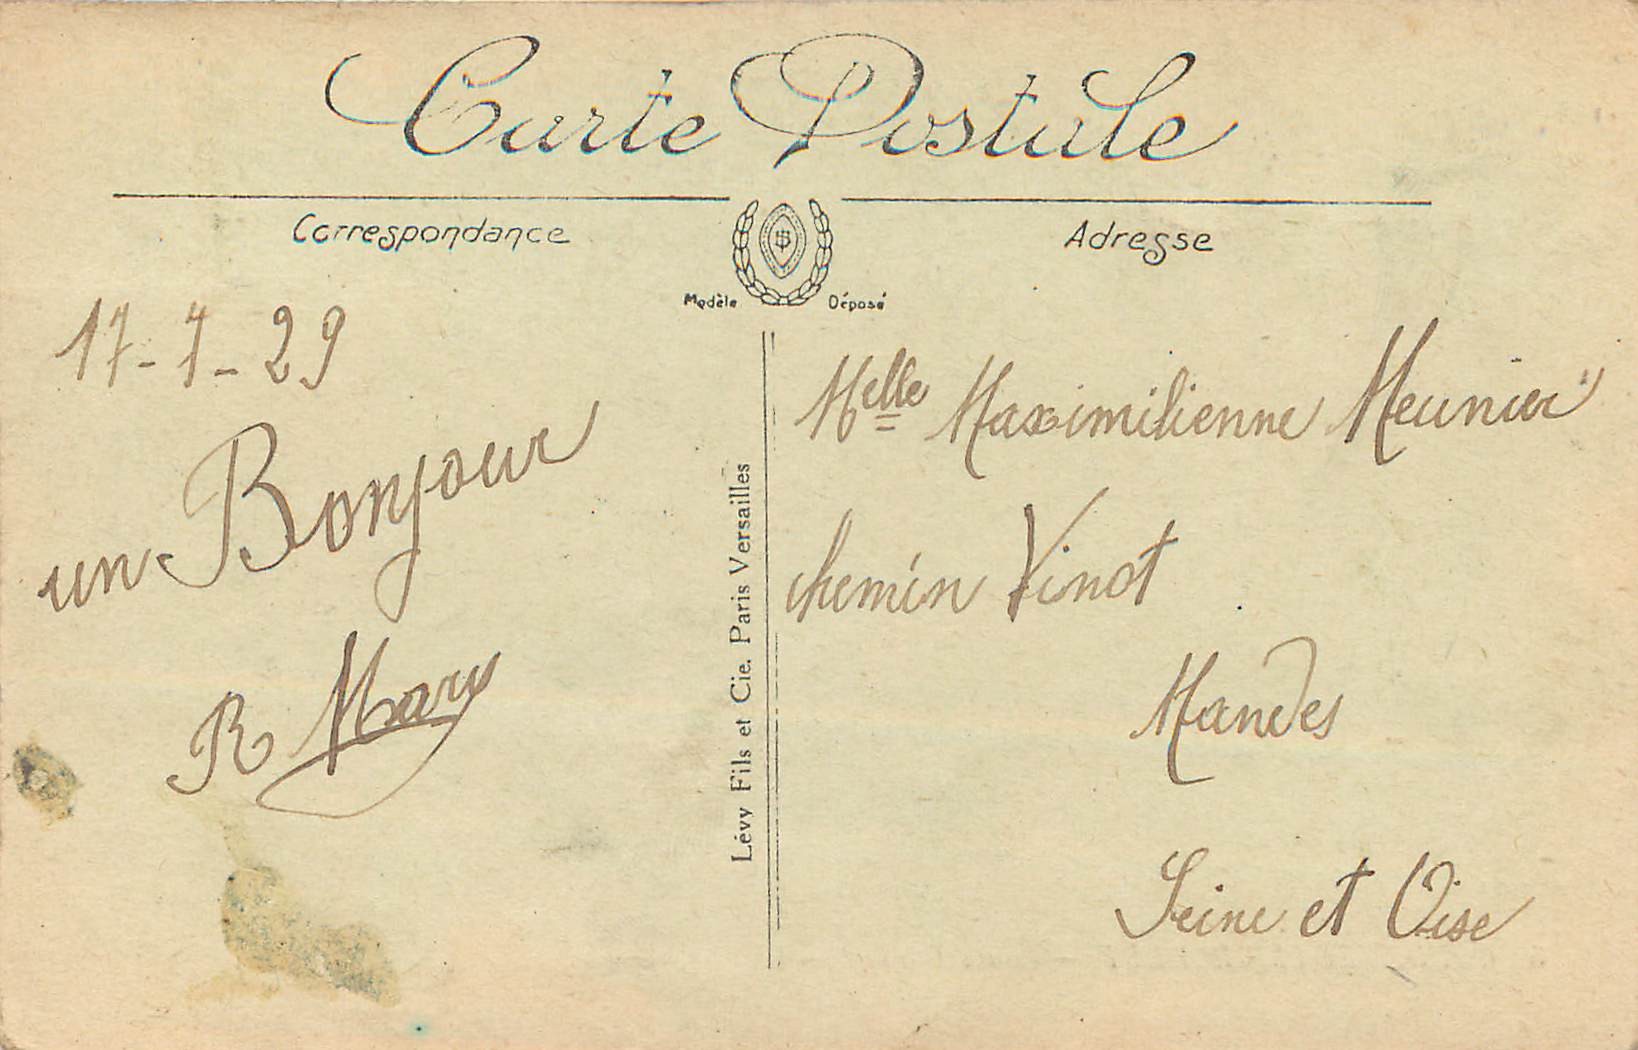 Carte Postale
Correspondance
Adresse
Modèle Déposé
17-7-29
un Bonjour
R Mary
Lévy Fils et Cie. Paris Versailles
Melle Maximilienne Meunier
chemin Vinot
Mandes
Seine et Oise